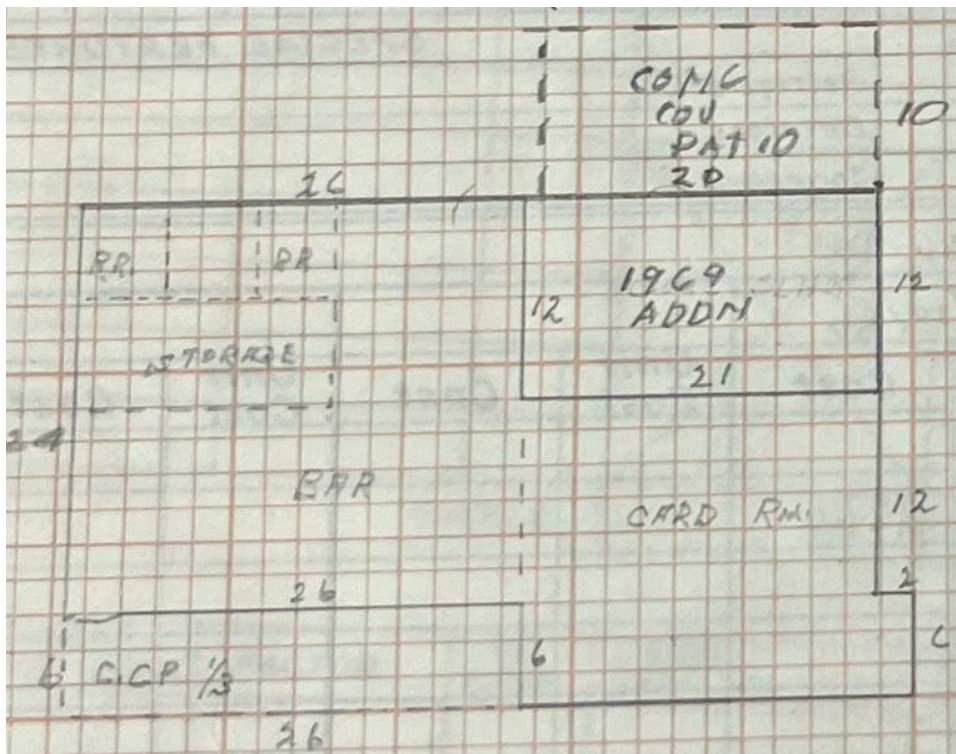 CONC
COV
PATIO
20
10
26
RR
RR
12
1969
ADDN
12
STORAGE
21
24
BAR
CARD RM.
12
26
2
6
C.CP 1/3
6
6
26